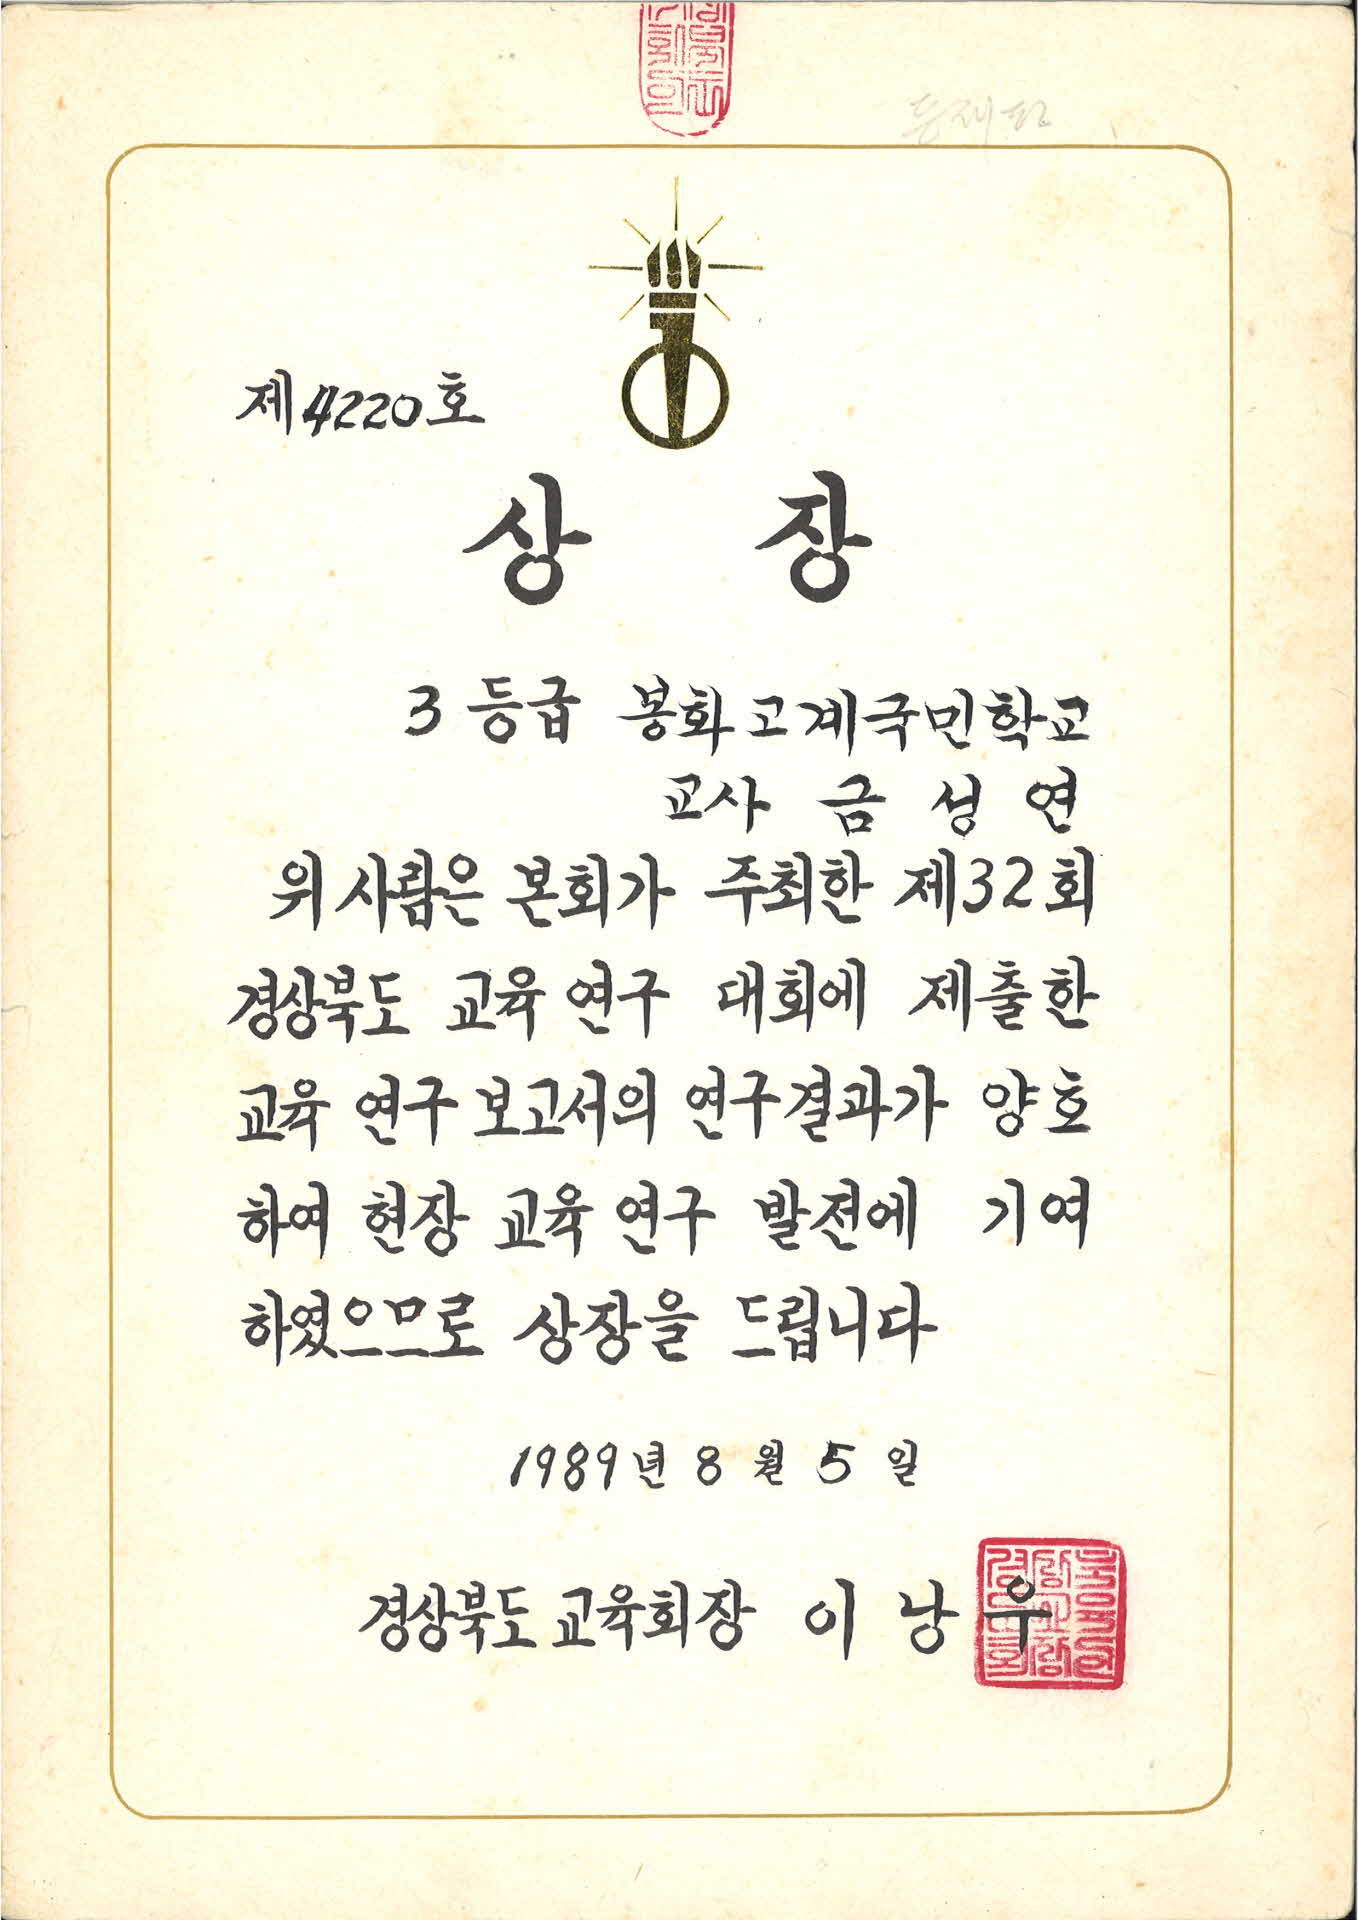 제4220호
상 장
3등급 봉화고계국민학교
교사 금 성 연
위 사람은 본회가 주최한 제32회
경상북도 교육 연구 대회에 제출한
교육 연구 보고서의 연구결과가 양호
하여 현장 교육 연구 발전에 기여
하였으므로 상장을 드립니다
1989년 8월 5일
경상북도 교육회장 이 낭 우